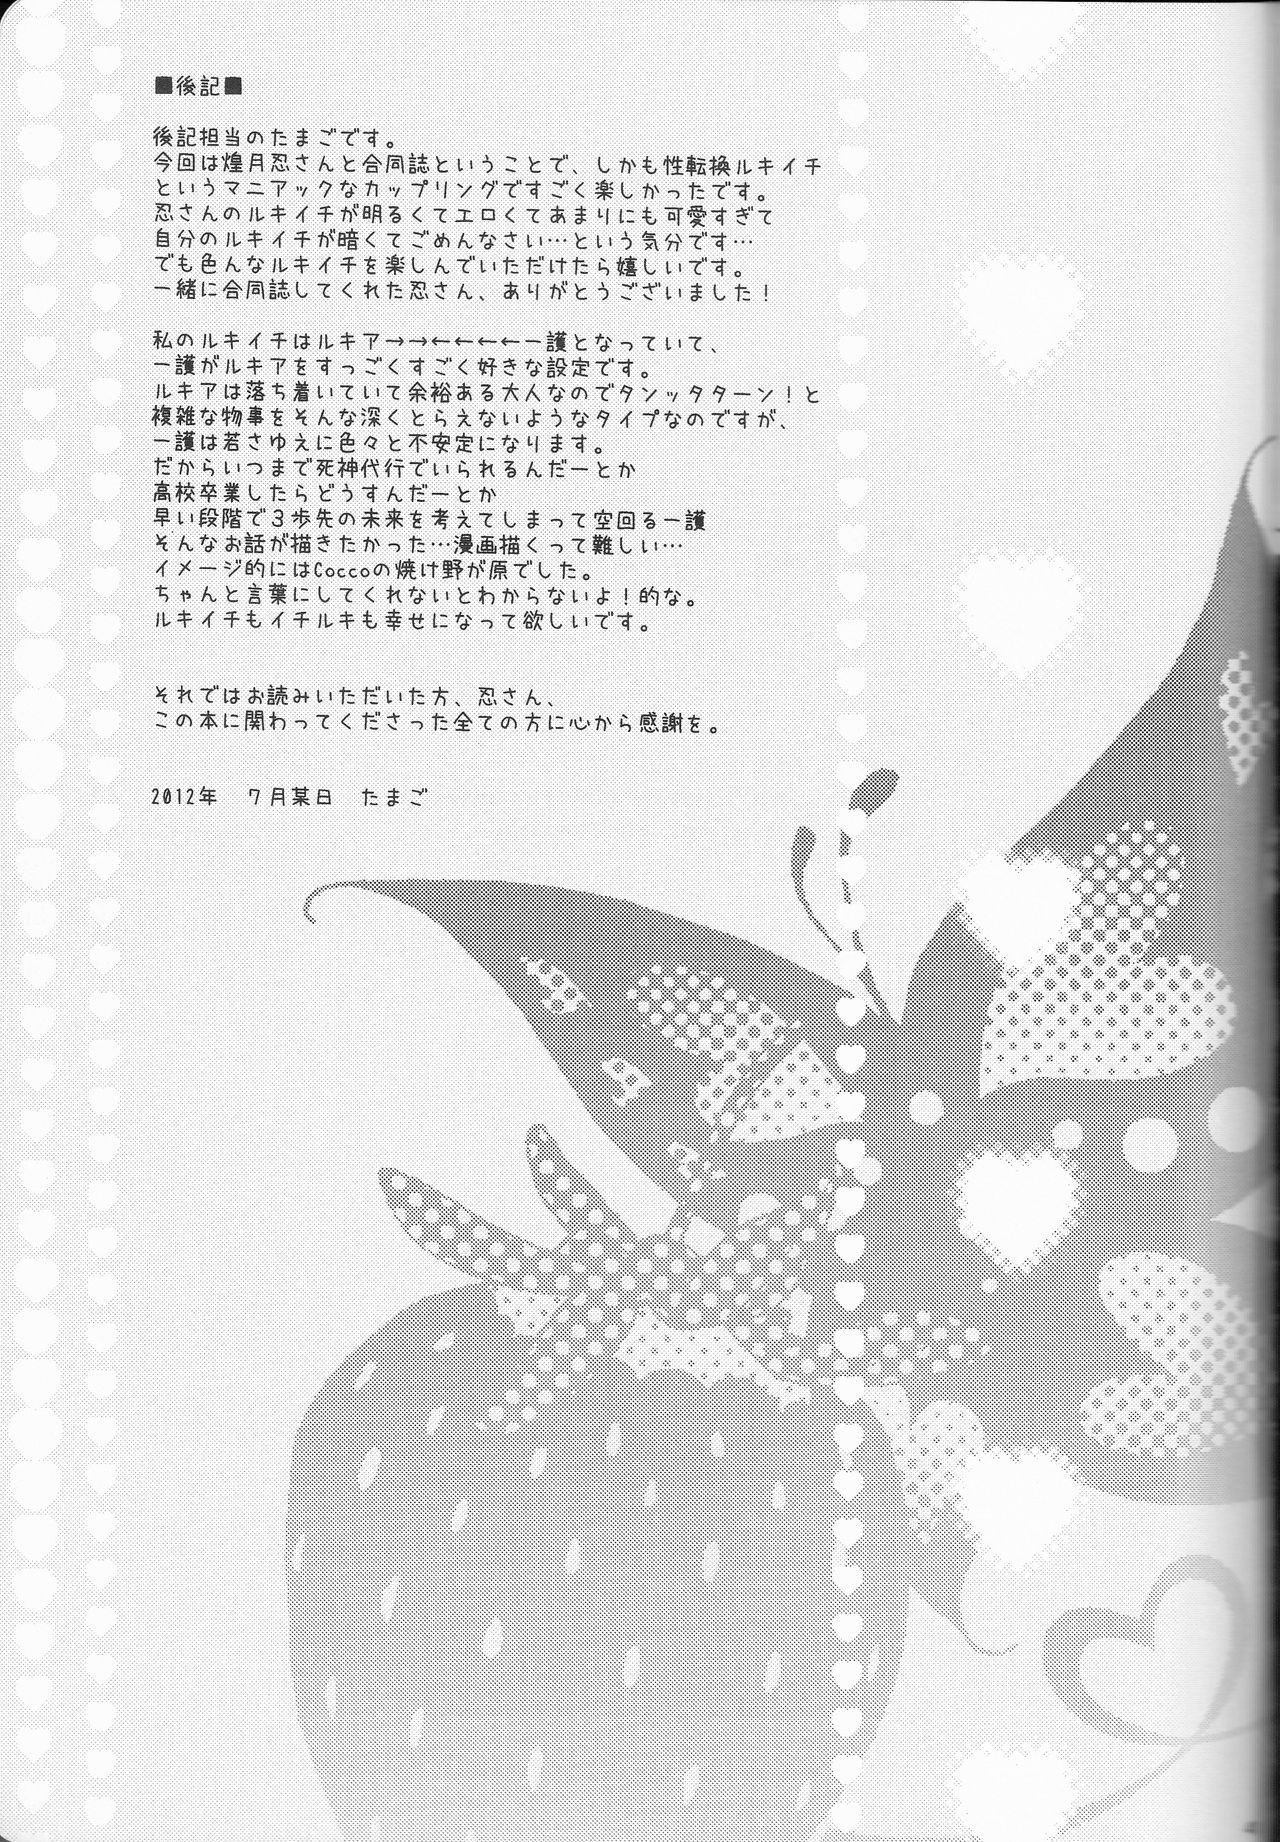 ■後記■
後記担当のたまごです。
今回は煌月忍さんと合同誌ということで、しかも性転換ルキイチ
というマニアックなカップリングですごく楽しかったです。
忍さんのルキイチが明るくてエロくてあまりにも可愛すぎて
自分のルキイチが暗くてごめんなさい…という気分です…
でも色んなルキイチを楽しんでいただけたら嬉しいです。
一緒に合同誌してくれた忍さん、ありがとうございました！
私のルキイチはルキア→→←←←←一護となっていて、
一護がルキアをすっごくすごく好きな設定です。
ルキアは落ち着いていて余裕ある大人なのでタンッタターン！と
複雑な物事をそんな深くとらえないようなタイプなのですが、
一護は若さゆえに色々と不安定になります。
だからいつまで死神代行でいられるんだーとか
高校卒業したらどうすんだーとか
早い段階で３歩先の未来を考えてしまって空回る一護
そんなお話が描きたかった…漫画描くって難しい…
イメージ的にはCoccoの焼け野が原でした。
ちゃんと言葉にしてくれないとわからないよ！的な。
ルキイチもイチルキも幸せになって欲しいです。
それではお読みいただいた方、忍さん、
この本に関わってくださった全ての方に心から感謝を。
2012年　７月某日　たまご